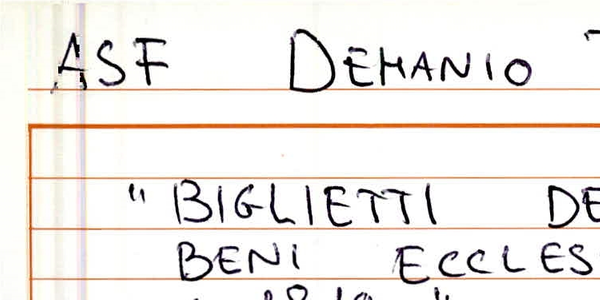 ASF DEMANIO
"BIGLIETTI DE
BENI ECCLES